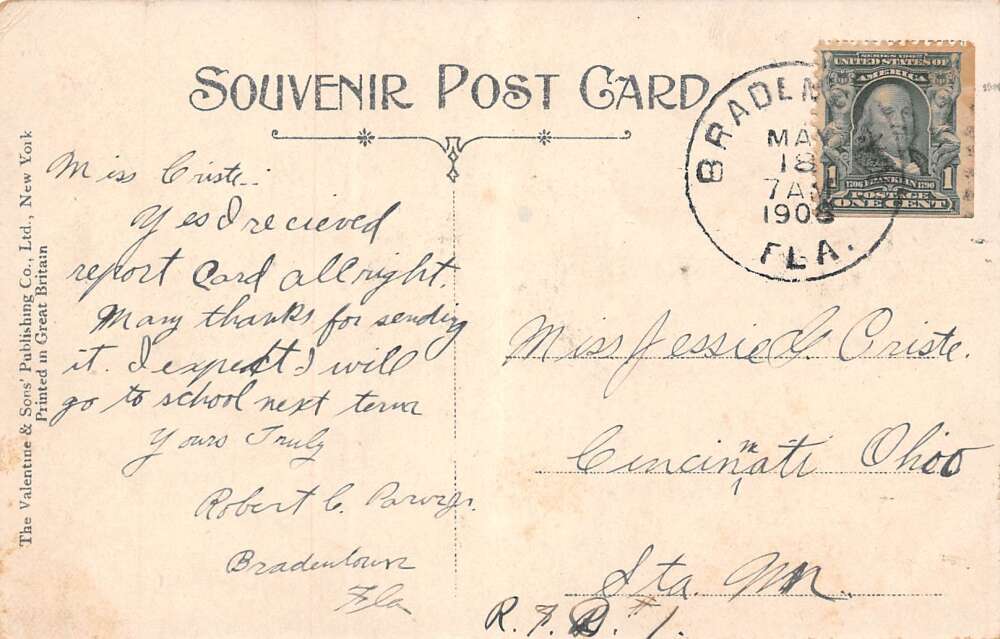 SOUVENIR POST CARD
The Valentine & Sons' Publishing Co., Ltd., New York
Printed in Great Britain
Miss Criste..
Yes I recieved
report Card all right.
Many thanks for sending
it. I expect I will
go to school next term
Yours Truly
Robert C.
Bradentown
Fla
MAY
18
7 AM
FLA.
SERIES 1902
UNITED STATES OF
AMERICA
1 1
1706 FRANKLIN 1790
POSTAGE
ONE CENT
Miss Jessie Criste.
Cincinnati Ohio
Sta.
R. F. D. #1.